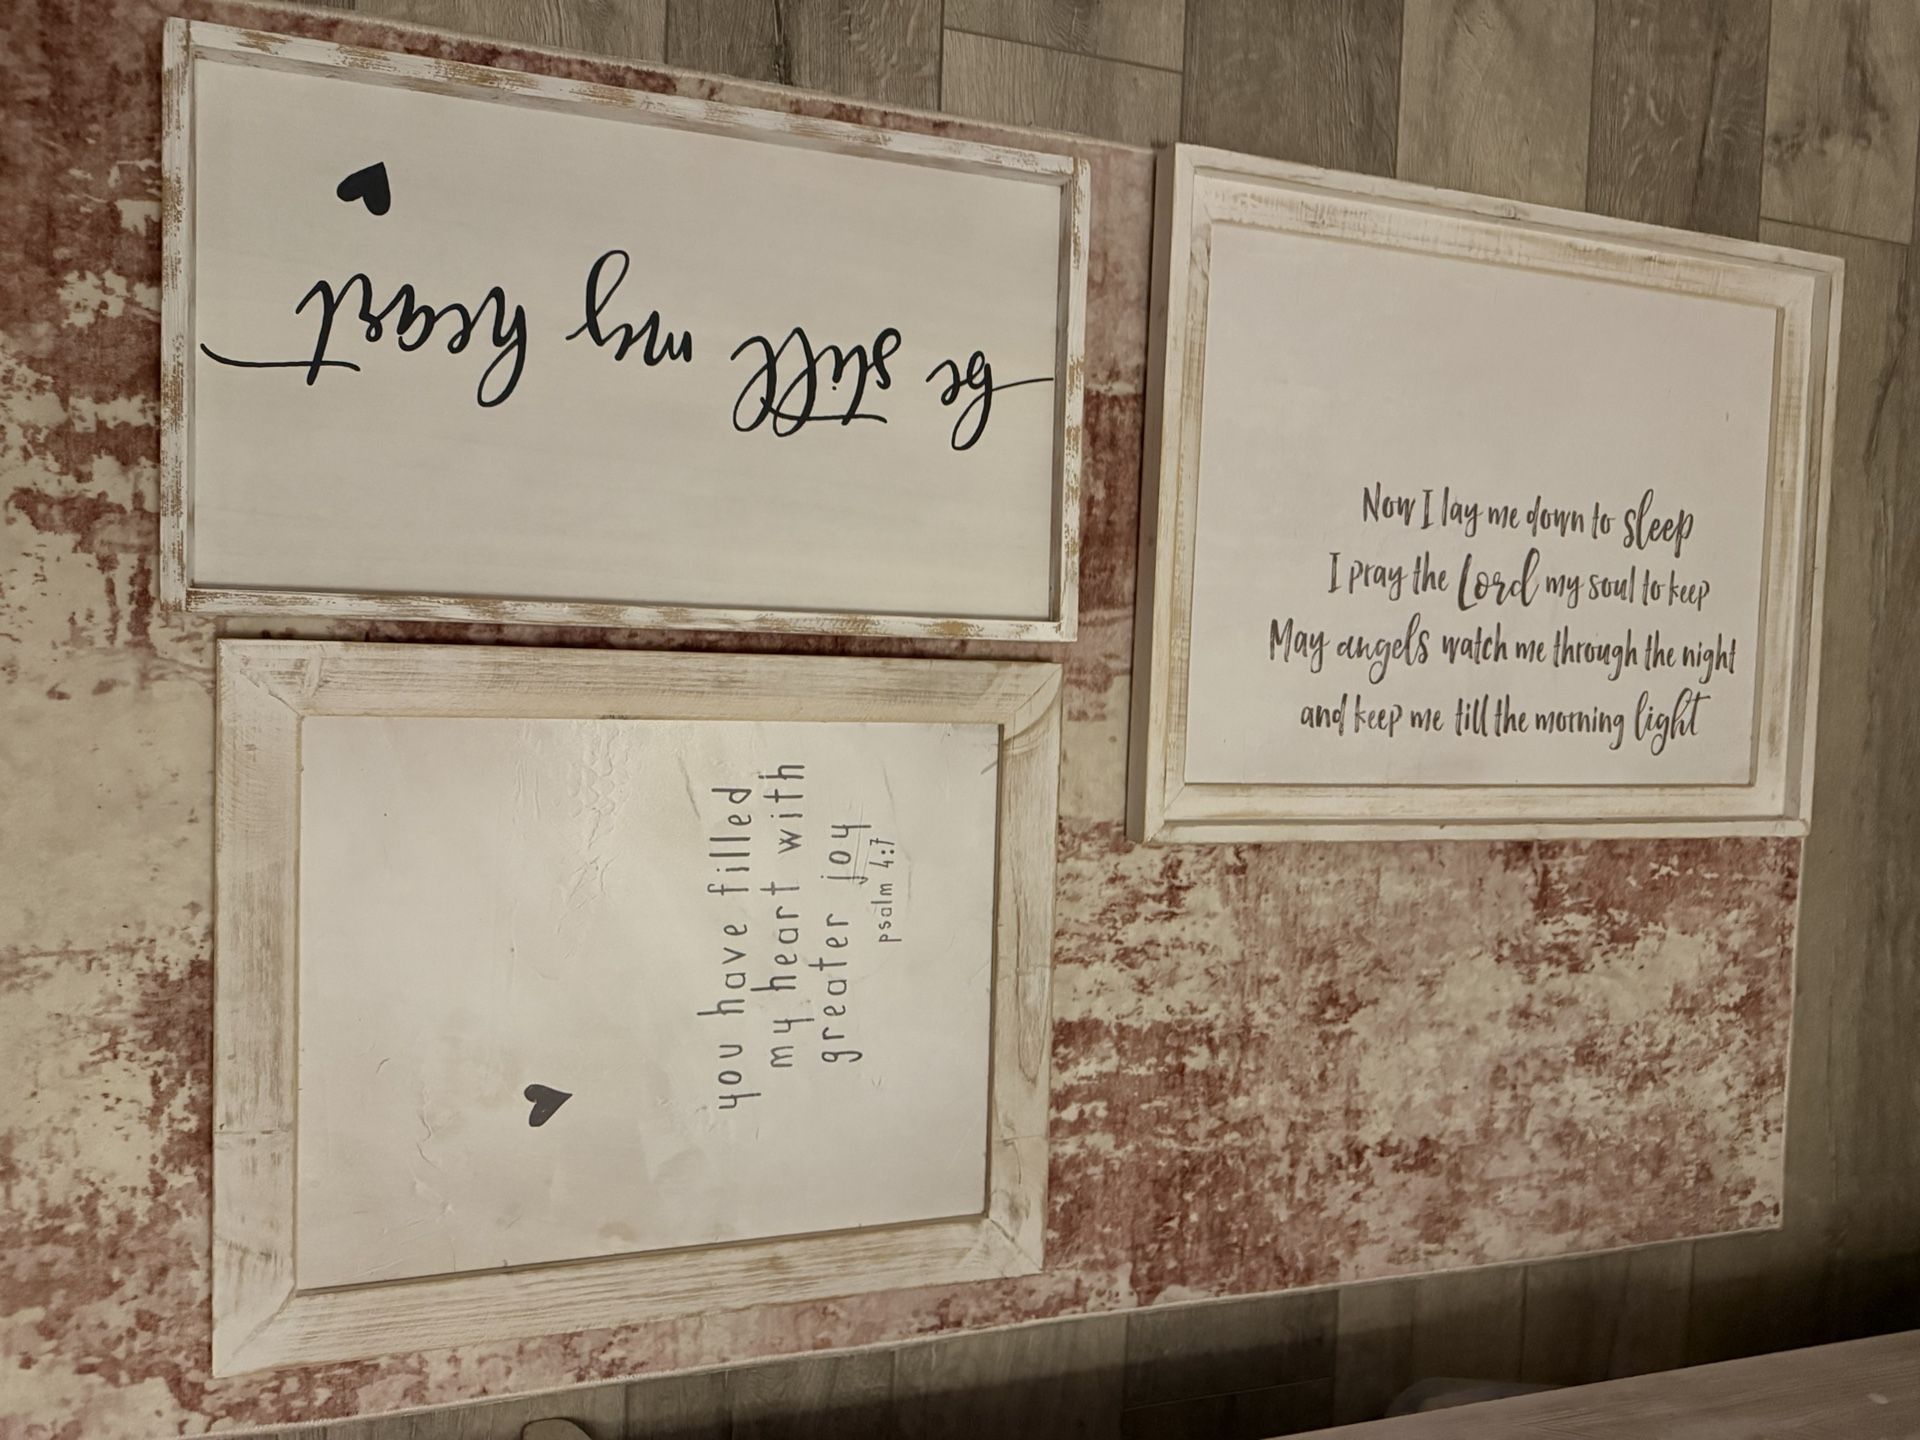 be still my heart
Now I lay me down to sleep
I pray the Lord my soul to keep
May angels watch me through the night
and keep me till the morning light
you have filled
my heart with
greater joy
psalm 4:7